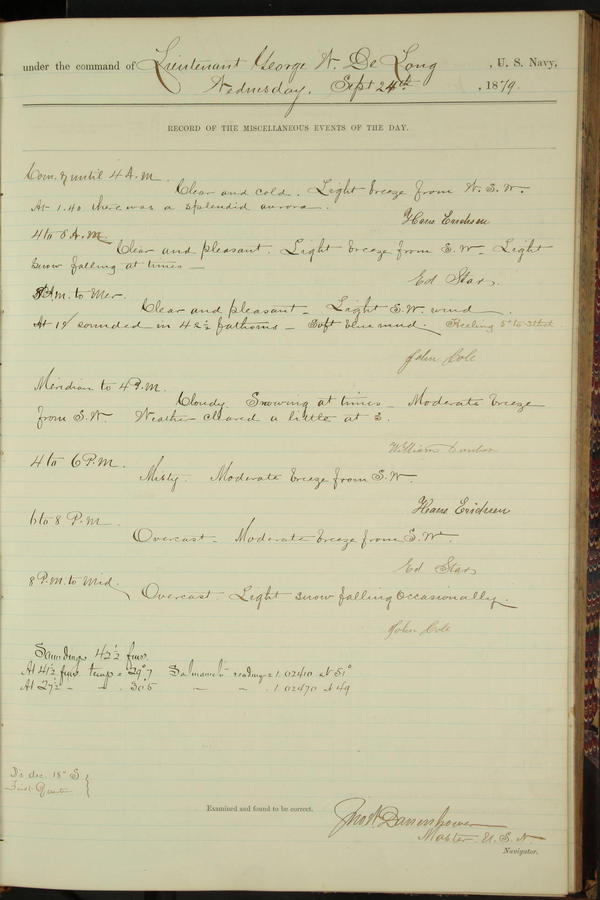 under the command of Lieutenant George W. De Long, U. S. Navy,
Wednesday, Sept 24th, 1879.
RECORD OF THE MISCELLANEOUS EVENTS OF THE DAY.
Com. & until 4 A.M.
Clear and cold. Light breeze from W.S.W.
At 1.40 there was a splendid aurora.
Hans Erichsen
4 to 8 A.M.
Clear and pleasant. Light breeze from S.W. Light
snow falling at times —
Ed Starr.
8 A.M. to Mer.
Clear and pleasant — Light S.W. wind.
At sounded in 42½ fathoms — Soft blue mud.
John Cole
Meridian to 4 P.M.
Cloudy. Snowing at times — Moderate breeze
from S.W. Weather cleared a little at 3.
William Dunbar
4 to 6 P.M.
Misty. Moderate breeze from S.W.
Hans Erichsen
6 to 8 P.M.
Overcast — Moderate breeze from S.W.
Ed Starr
8 P.M. to Mid.
Overcast Light snow falling occasionally.
John Cole
Soundings 42½ fms.
At 41½ fms. temp = 29°.7 reading = 1.02410 at 51°
At 27½ - - 30.5 - - 1.02470 at 49
D's dec. 18° S
First Quarter
Examined and found to be correct.
Jno W Danenhower
Master U.S.N.
Navigator.